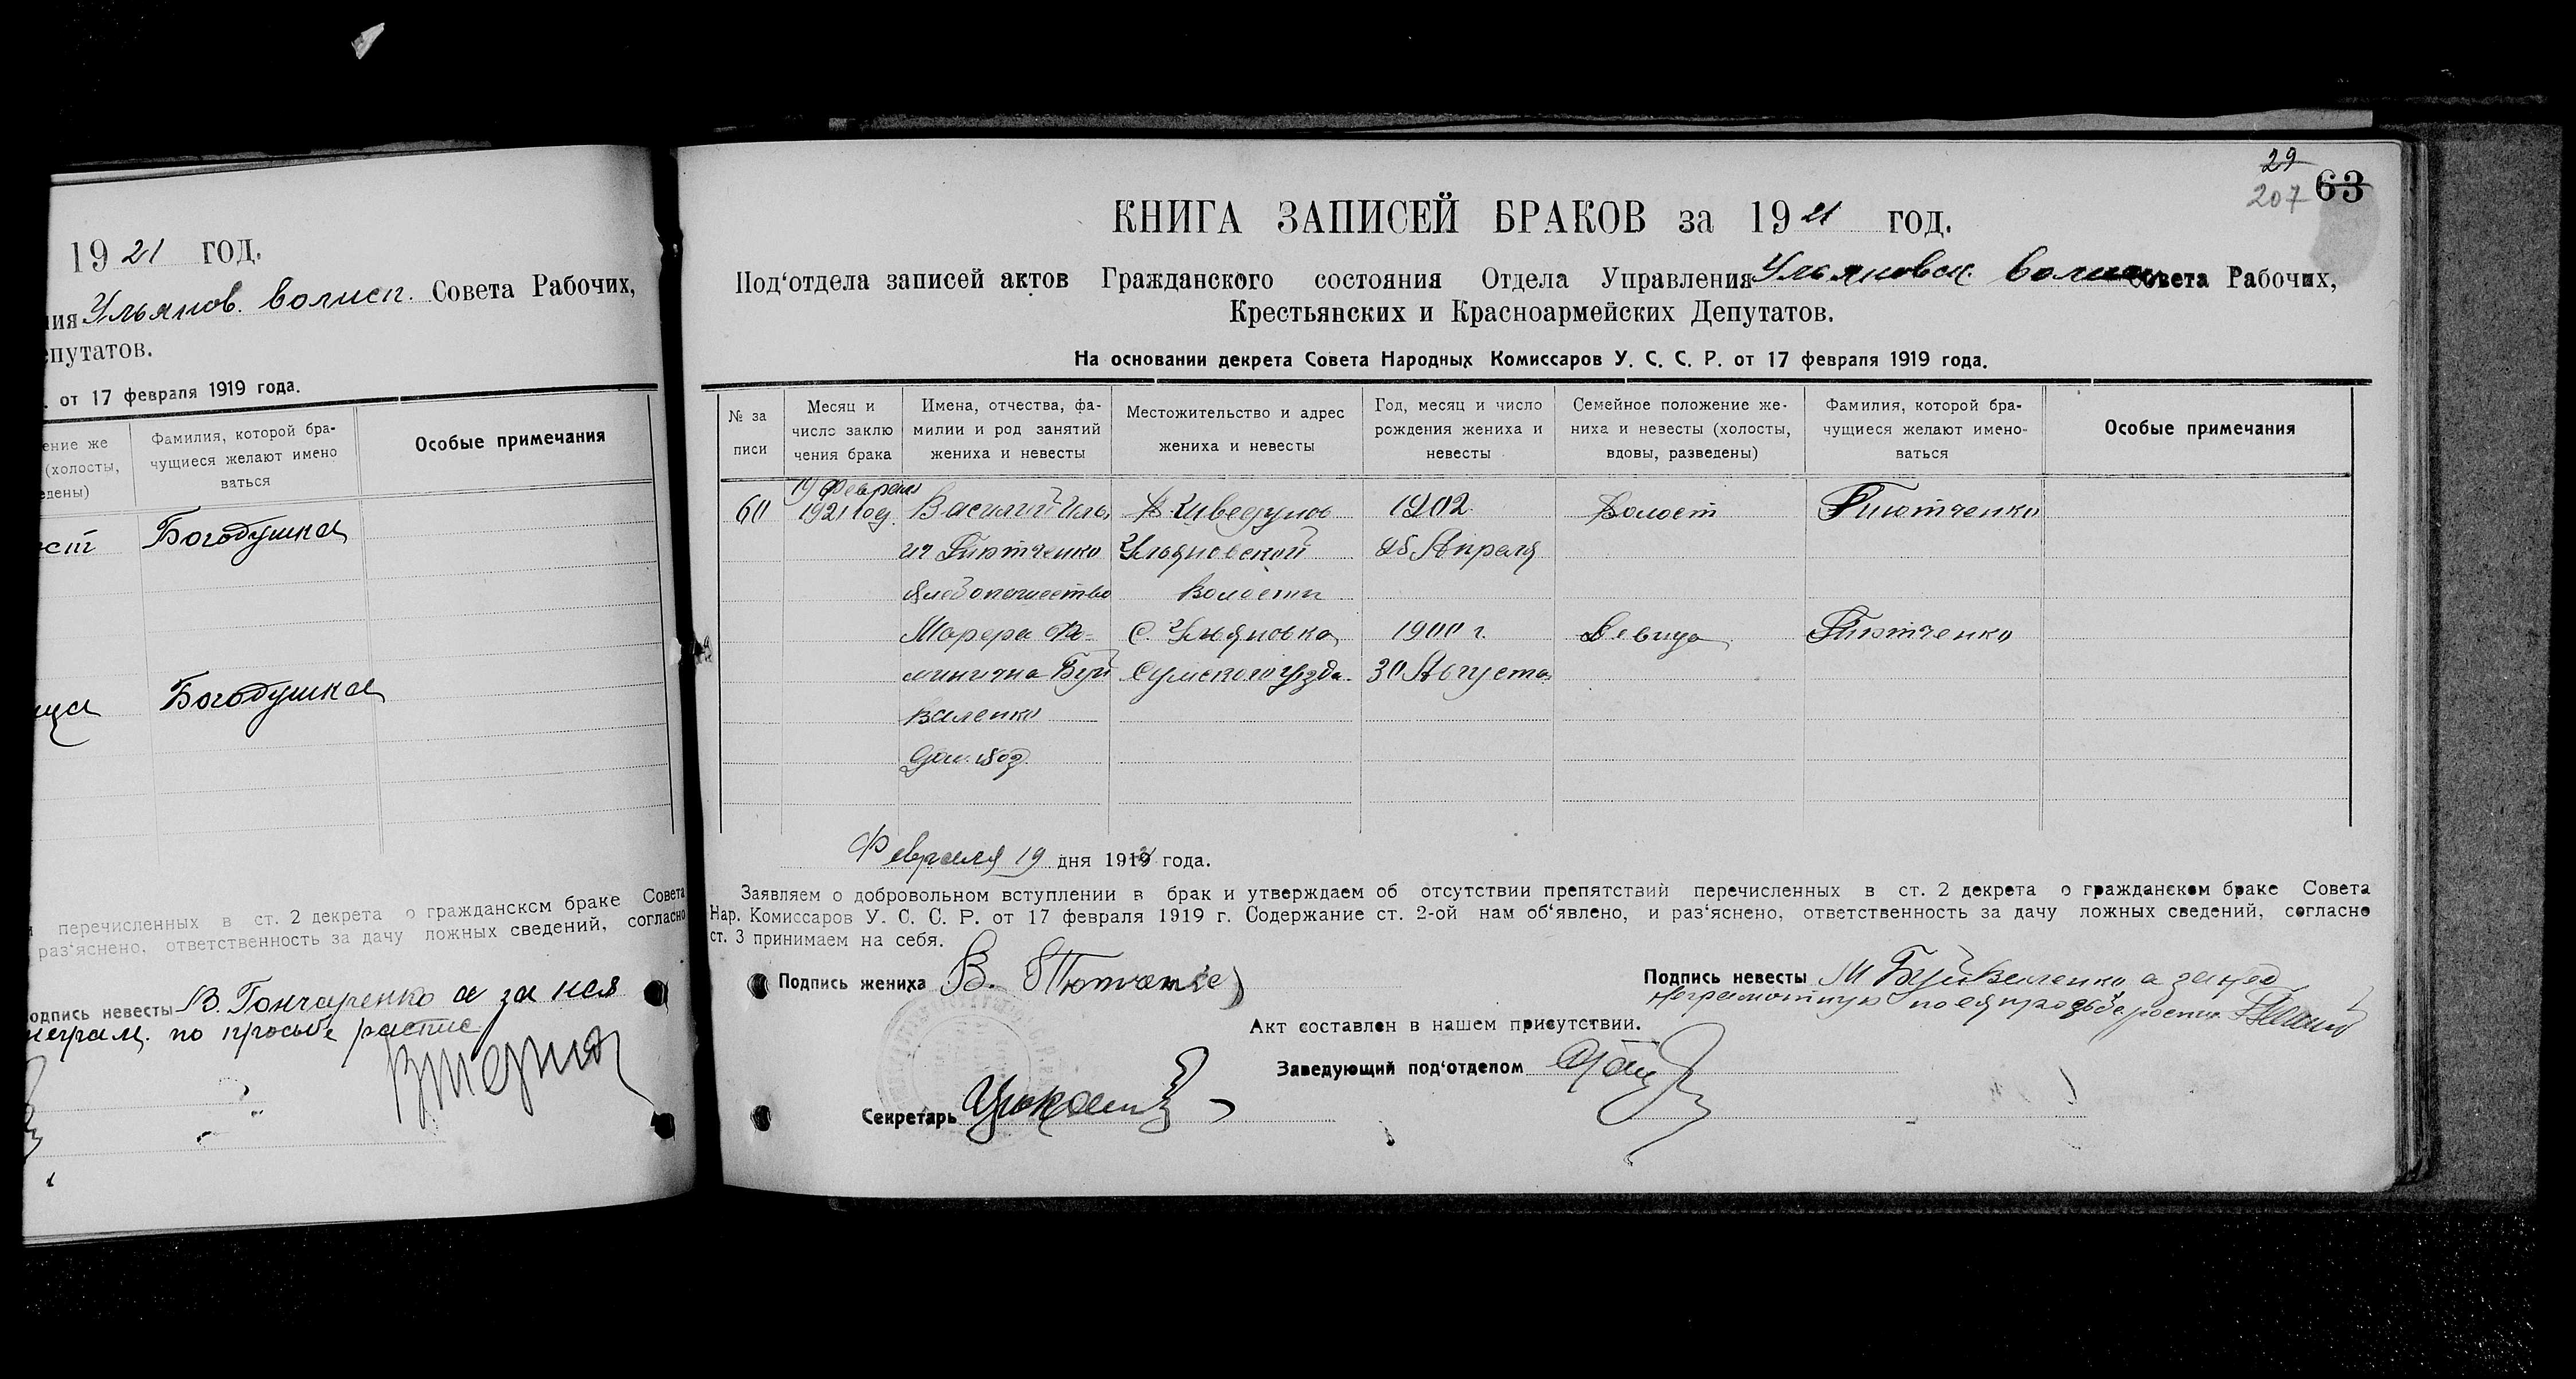 1921 год.
Ульянов. волисп. Совета Рабочих,
епутатов.
. от 17 февраля 1919 года.
ение же
(холосты,
едены)
Фамилия, которой бра-
чущиеся желают имено
ваться
Особые примечания
Богодушка
Богодушка
перечисленных в ст. 2 декрета о гражданском браке Совета
раз'яснено, ответственность за дачу ложных сведений, согласно
одпись невесты В. Гончаренко а за нея
неграм. по просьбе распис
29
207 63
КНИГА ЗАПИСЕЙ БРАКОВ за 1921 год.
Под'отдела записей актов Гражданского состояния Отдела Управления Ульяновск. Совета Рабочих,
Крестьянских и Красноармейских Депутатов.
На основании декрета Совета Народных Комиссаров У. С. С. Р. от 17 февраля 1919 года.
№ за
писи
Месяц и
число заклю
чения брака
Имена, отчества, фа-
милии и род занятий
жениха и невесты
Местожительство и адрес
жениха и невесты
Год, месяц и число
рождения жениха и
невесты
Семейное положение же-
ниха и невесты (холосты,
вдовы, разведены)
Фамилия, которой бра-
чущиеся желают имено-
ваться
Особые примечания
60
19 Февраля
1921 год.
Василий Иль
ич Тютченко
хлебопашество
Марфа Фо-
минична Буй
валенко
Ульяновской
Волости
С. Ульяновка
Сумского уезда
1902
Апреля
1900 г.
30 Августа
Холост
Девица
Тютченко
Тютченко
Февраля 19 дня 1919 года.
Заявляем о добровольном вступлении в брак и утверждаем об отсутствии препятствий перечисленных в ст. 2 декрета о гражданском браке Совета
Нар. Комиссаров У. С. С. Р. от 17 февраля 1919 г. Содержание ст. 2-ой нам об'явлено, и раз'яснено, ответственность за дачу ложных сведений, согласно
ст. 3 принимаем на себя.
Подпись жениха В.
Подпись невесты М Буйваленко а за нея
неграмотную по ея просьбе
Акт составлен в нашем присутствии.
Заведующий под'отделом
Секретарь